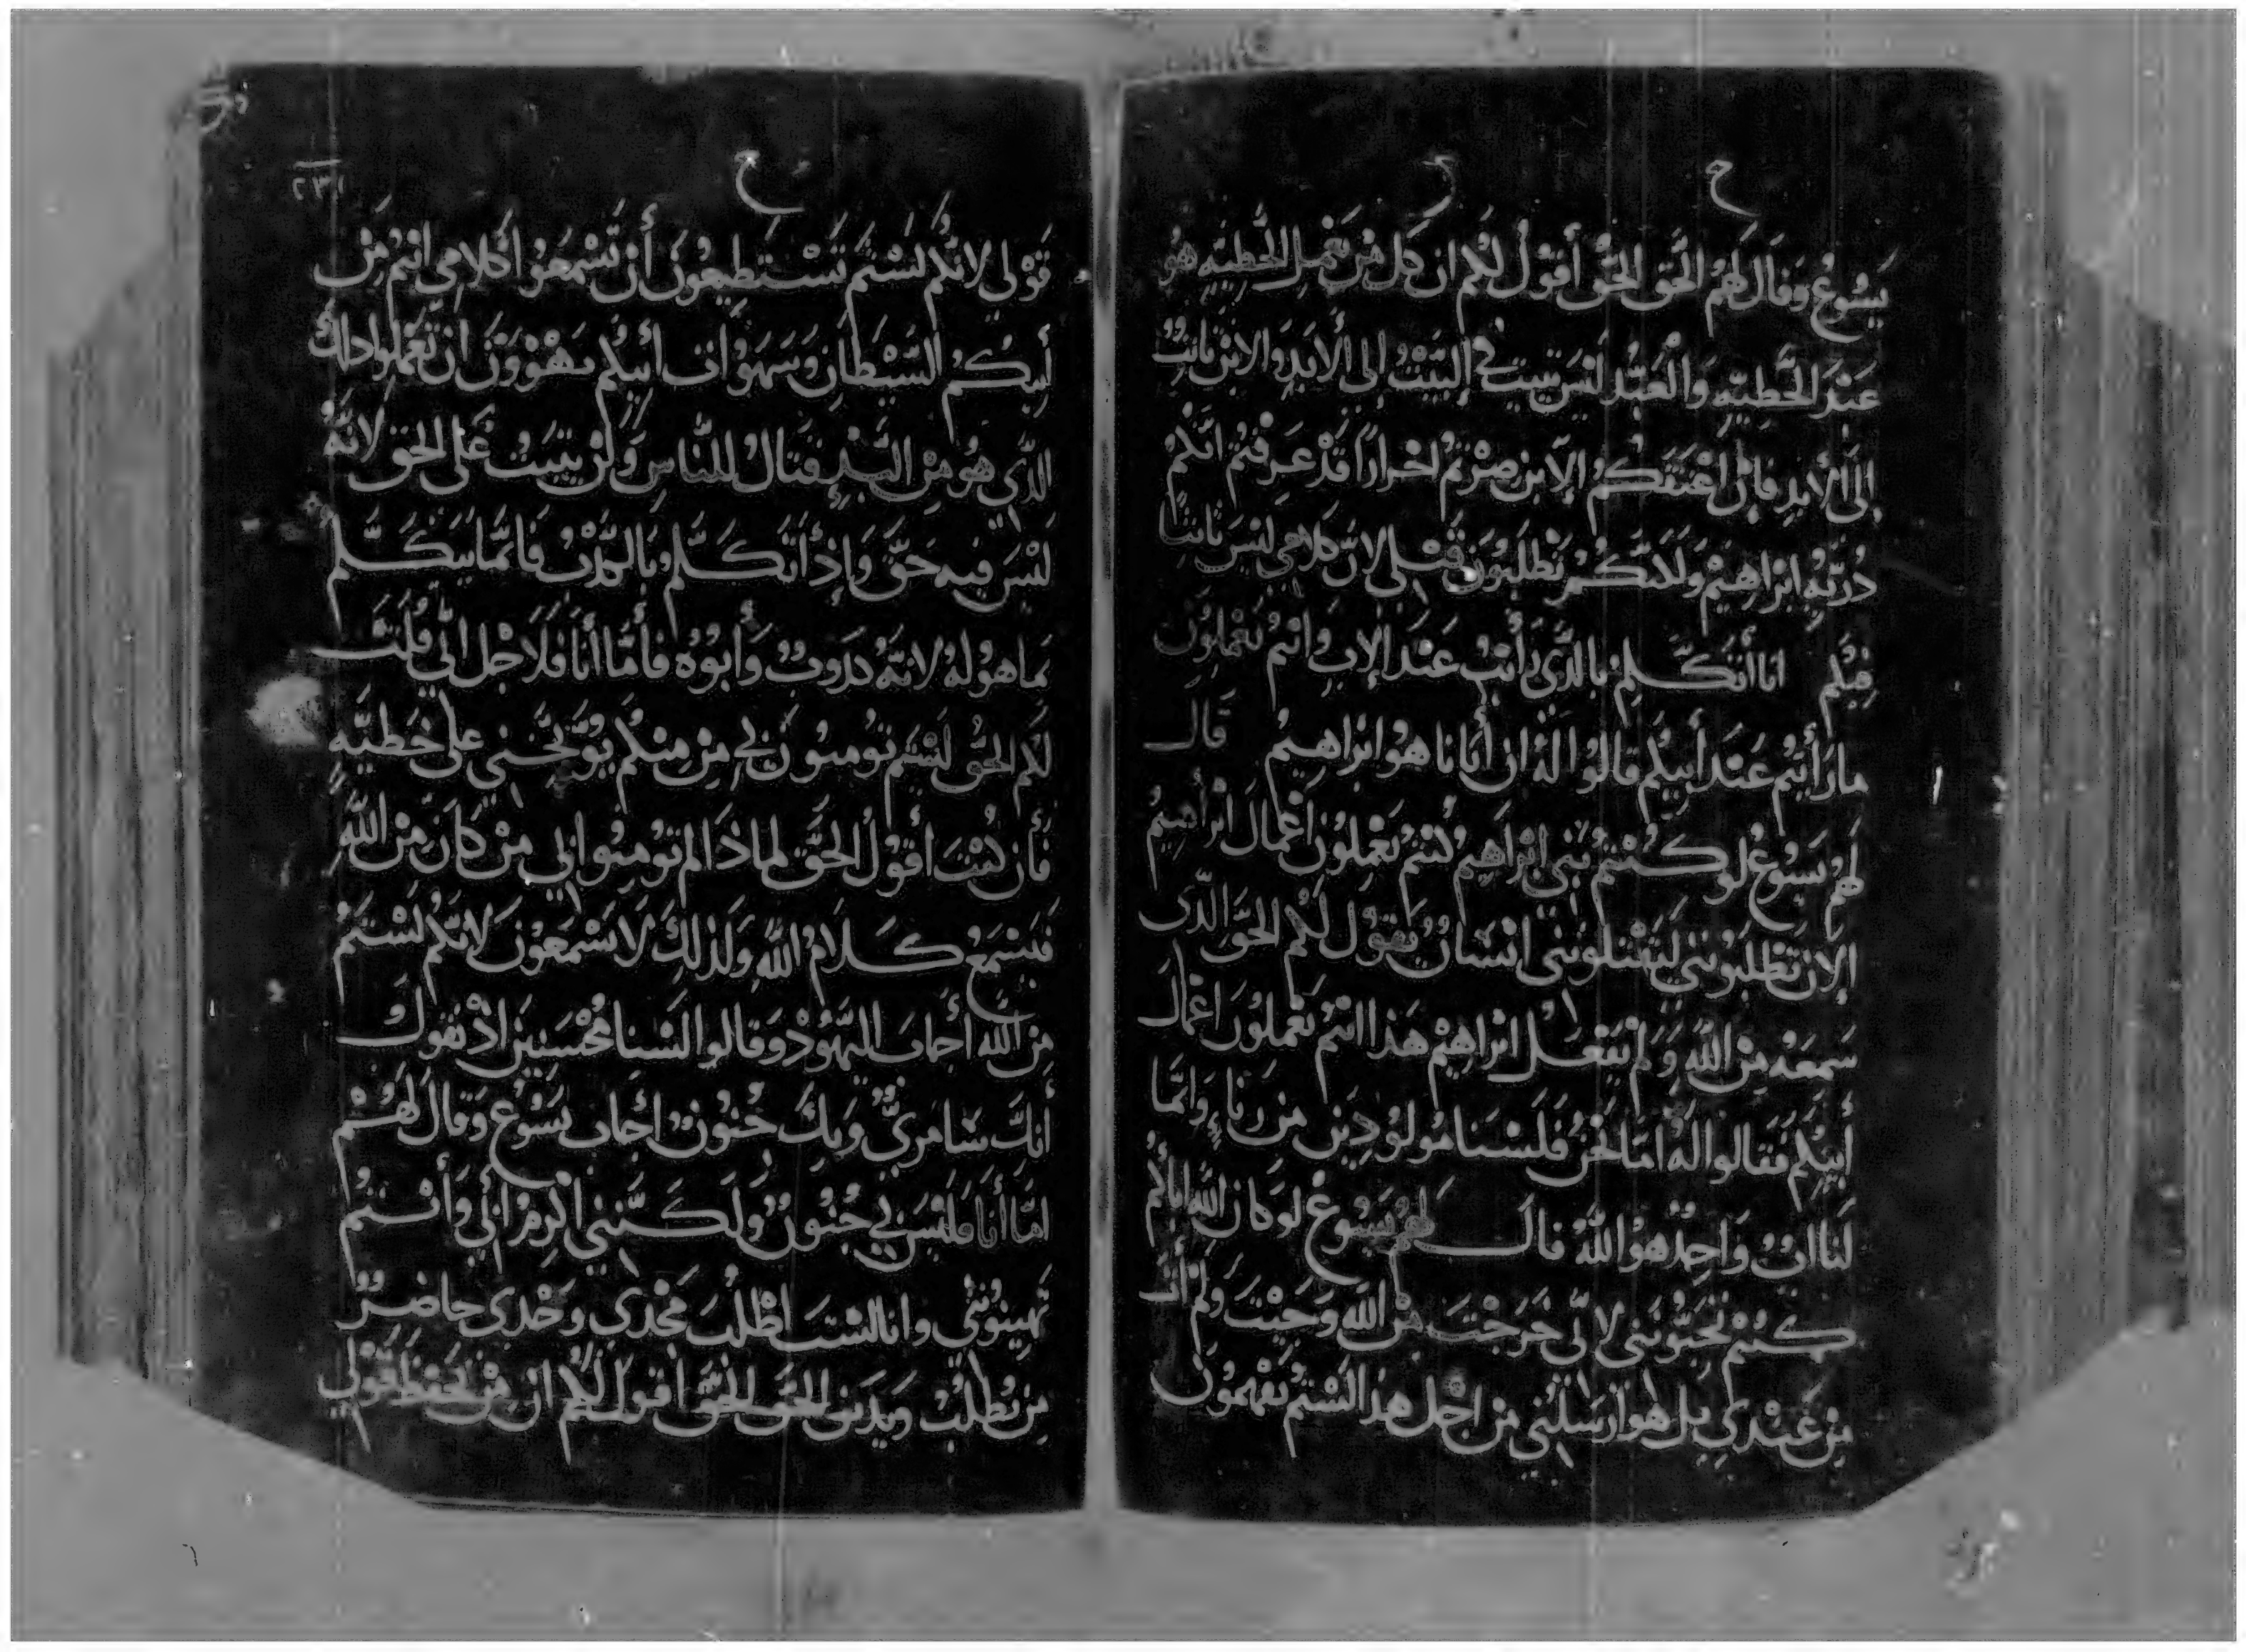 ح ح
يَسُوعُ وَقَالَ لَهُم الحَق الحَقُّ أَقوْل لَكُم ان كَل مَن يَعْمِل الخَطِيَّه هُو
عَبْدَ الخَطِيَّهِ وَالْعَبْدُ لَيْسَ يَثبت فِي البَيْتُ إلى الأَبَدِ وَالابْن ثابِتُ
الىَ الأَبَدِ فَإِنْ اعْتَقَكُمُ الإبن صِرْتُمْ احْرَارًا قَدْ عَرِفْتُم انَّكُمْ
ذُرّيَّةُ ابْرَاهِيْمَ وَلَاكنَّكُمْ تَطْلبُوْنَ قَتْلى لانَّ كَلَامِي لَيْسَ ثَابتًا
فِيْكُم انا أَتَكَلَّمُ بالذَّي رَأَيْتُ عَنْدَ الإبِ وَانْتُمُ تَعْمَلِوُنَ
ما رَأَيتُم عَنْدَ أَبِيكُم قالُوا لَهُ ان أَبَانا هُوَ ابْرَاهِيمُ قَالَ
لَهُمْ يَسُوعُ لَو كُنْتُمْ بَنِي ابْرَاهِيمُ كُنتُمْ تَعْمَلِوُنَ اعْمَالَ ابْراهِيمُ
الإن تَطْلبُوْنَني لتَقْتلُونَنِي انْسَانٌ يَقوْل لَكُم الحَقَّ الذَّى
سَمعَهُ مِنْ اللَّهِ وَلَم يَفْعَل ابْرَاهِيْمُ هَذا انتُمْ تَعْمَلوُنَ اعْمَالَ
أَبِيْكُم فَقَالوا لَهُ امَّا نَحْنُ فَلَسْنَا مَوْلوُدِيَن مِن زِناءٍ وَانَّمَا
لَنَا ابٌ وَاحِدْ هوْ اللَّهُ قال لَهُمْ يَسُوعُ لوْ كانَ اللَّهَ اباكُم
كنُتُمْ تُحِبُّوْنَنِي لانِّي خَرَجْتَ مِنْ اللَّه وَجَيْتَ وَلَمْ أت
مِن عَنْدِي بَل هُوَ ارْسَلنِي مِن اجْل هذا لَسْتُمُ تَفْهَمُوْنَ
٢٣١
ح
قَوْلي لانَّكُمْ لَسْتُمْ تَسْتَطِيعُونَ أَن تَسْمَعوُا كَلامِي انتُمْ مِنْ
أَبِيكُمُ الشَّيْطَانِ وَشَهوَات أَبِيكُمْ تَهْوَوْنَ ان تَعْملوا ذاكَ
الذَّي هُوَ مِنْ البَدْءِ قتَالُ للنَّاسِ وَلَمْ يثبُت عَلَى الحَق لانَّهُ
لَيْسَ فِيهِ حَقَّ وَإِذَا تَكَلَّم بالكِذْبُ فَانمَّا يَتَكَلَّمُ
بمَا هوُ لهُ لانَّهُ كذوبٌ وَأَبُوْهُ فَأَمَّا أَنَا فَلَاجْل انِّي قُلتَ
لَكُم الحَقُّ لَسْتُم تُومنوُنَ بِي مِن مِنكُمْ يُوَبِّخُني على خَطيَّهٍ
فَأن كنُتَ أَقوُل الحَقَّ لماذَا لم تُومِنُوا بِي مَنْ كَانَ مِنْ اللَّهِ
فَيسْمَعُ كَلَامُ اللَّهِ وَلذلِكَ لَا تَسْمَعوُنَ لانَّكُم لَسْتمُ
مِنَ اللَّهِ أَجابَ اليَهُوْدُ وَقالوا السْنا مُحْسَنِيَن اذْ نقوُل
أنكَ سَامَرىٌّ وَبِكَ جُنُونٌ أجَاب يَسُوْعُ وَقالَ لَهُمْ
امَّا أَنَا فَليْسَ بِي جُنُونُ وَلَكَنَّنِي اكْرِمُ ابْي وَأَنتُمُ
تُهِينُونَنِي وانا لسْتَ اطْلبُ مَجْدي وَحْدي حاضِرٌ
مِن يُطْلبُ وَيدَين الحَقَّ الحَقَّ اقوْل لَكُم ان مَنْ يحَفظ قَوْلي